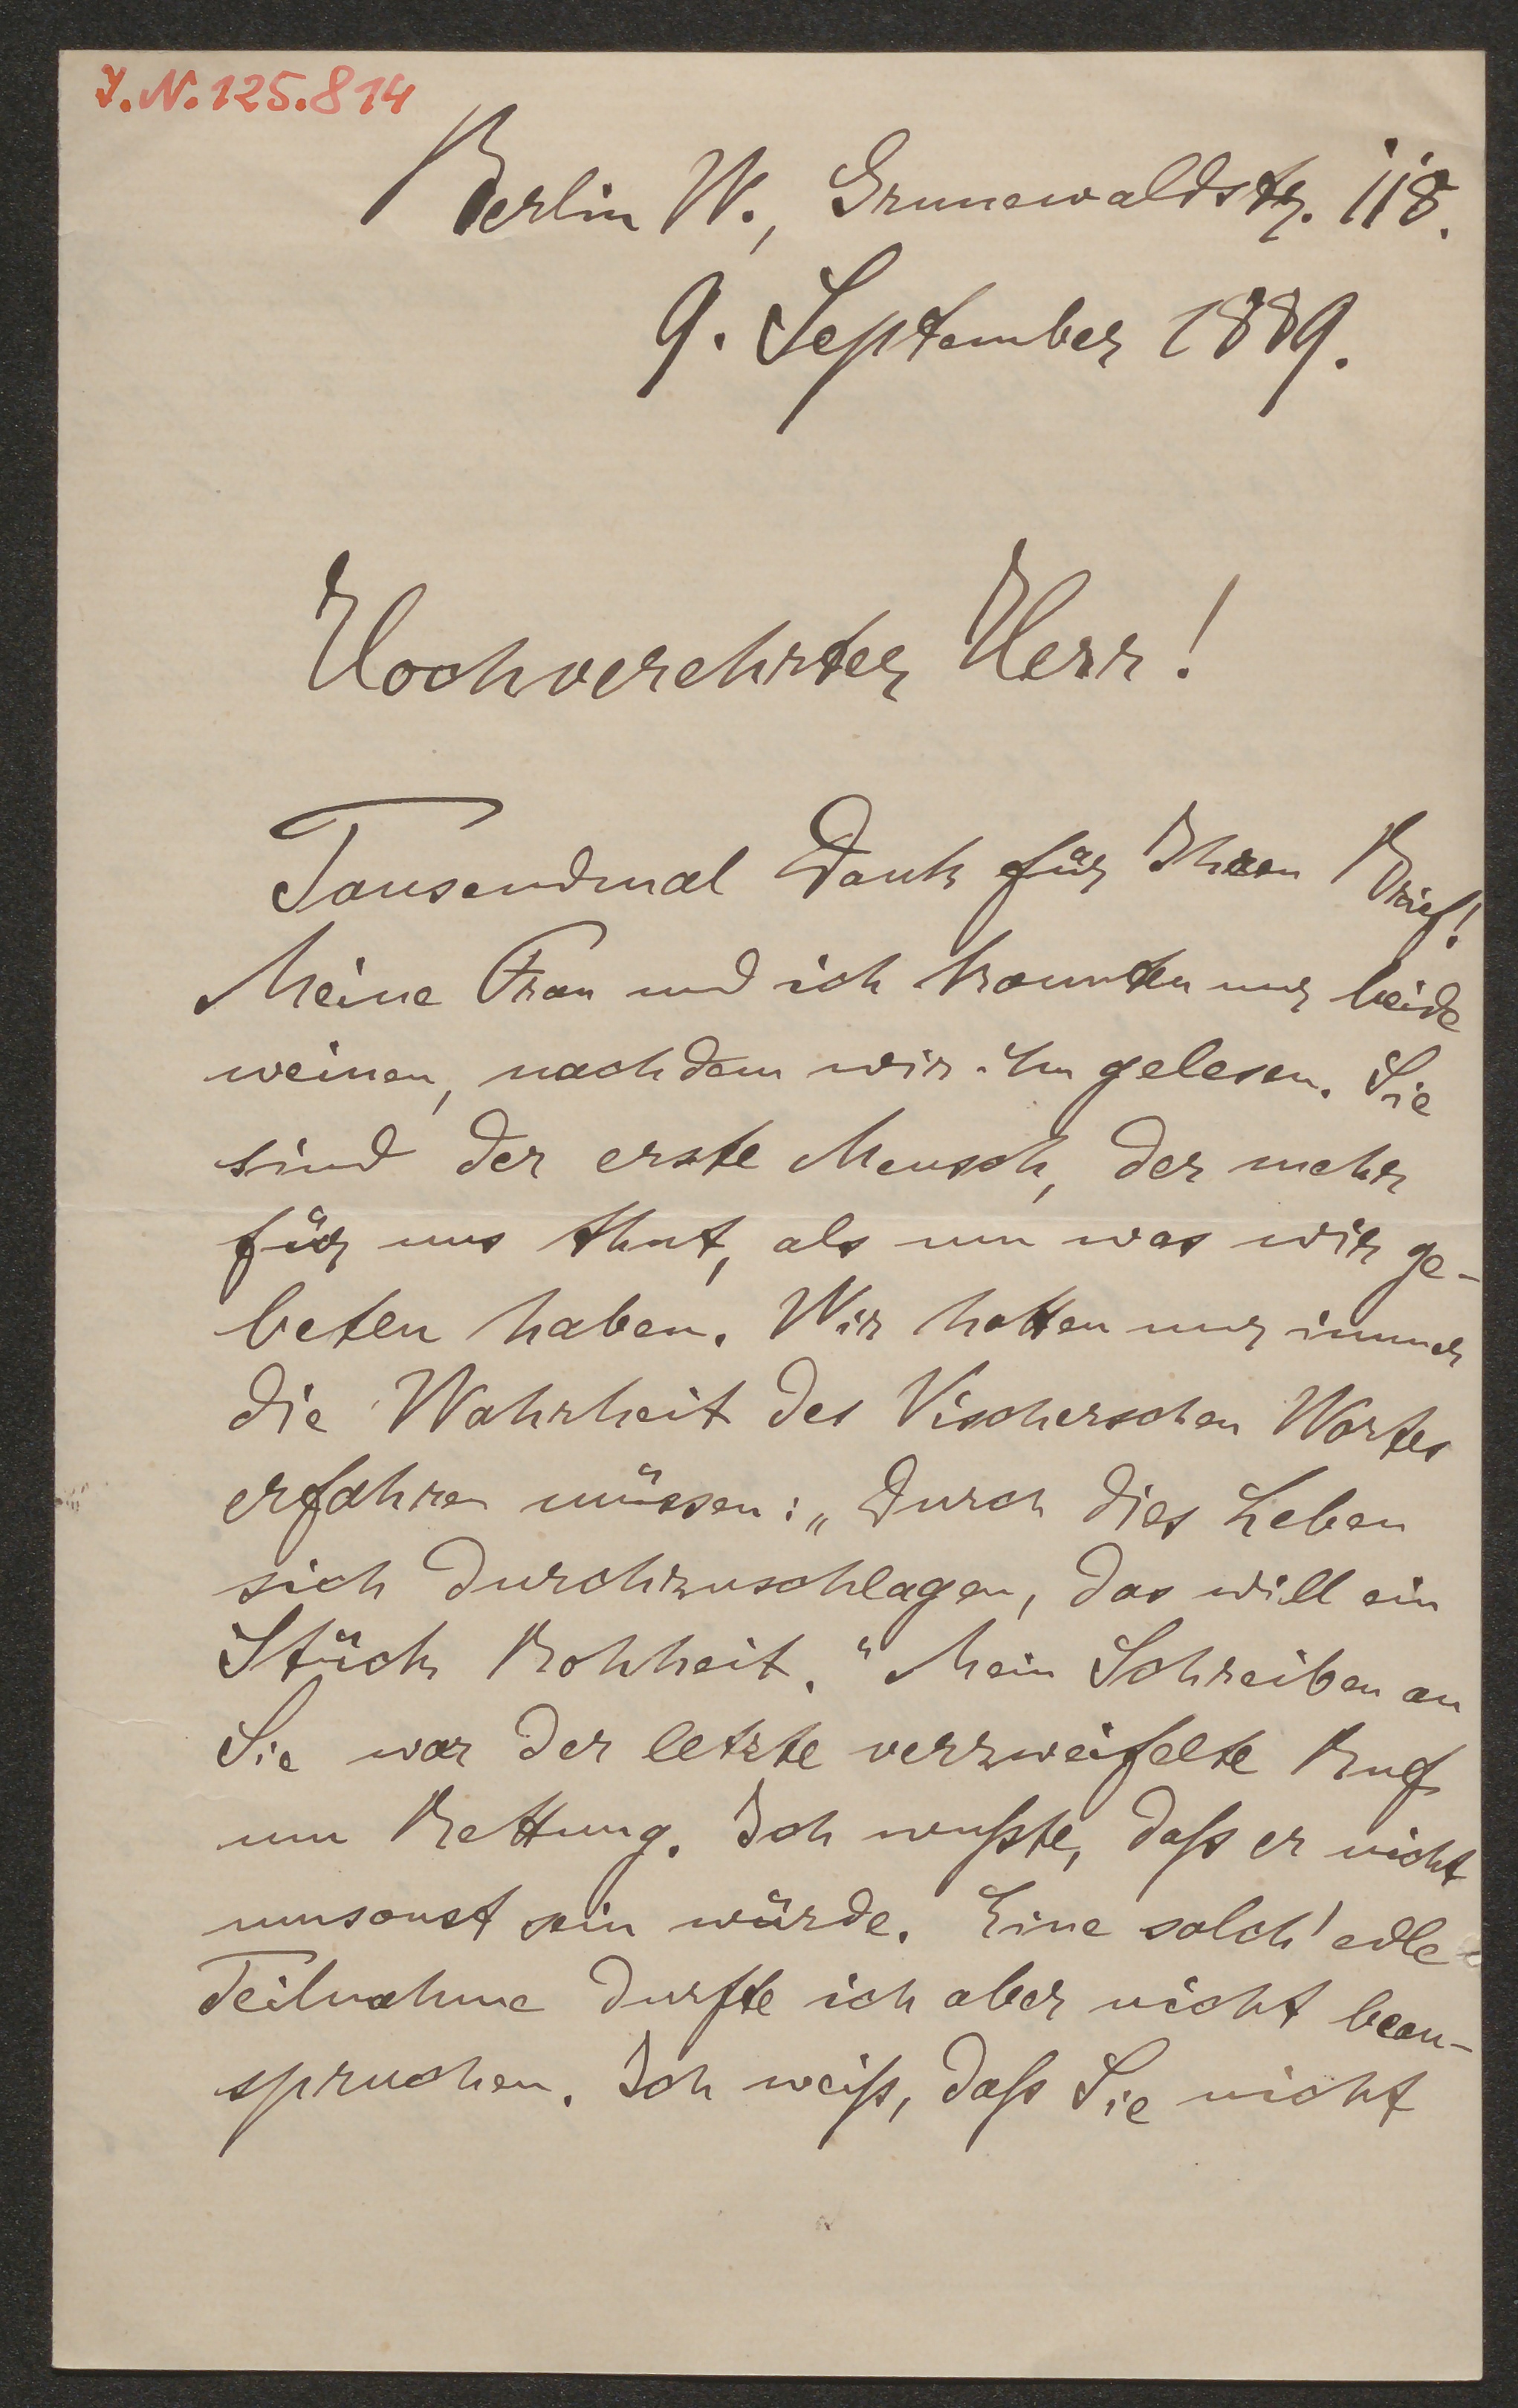 J.N. 125.814
Berlin W., Grunewaldstr. 118.
9. September 1889.
Hochverehrter Herr!
Tausendmal Dank für Ihren Brief!
Meine Frau und ich konnten nur beide
weinen, nachdem wir ihn gelesen. Sie
sind der erste Mensch, der mehr
für uns thut, als um was wir ge-
beten haben. Wir hatten nur immer
die Wahrheit des Vischerschen Wortes
erfahren müssen: „Durch dies Leben
sich durchzuschlagen, das will ein
Stück Rohheit.“ Mein Schreiben an
Sie war der letzte verzweifelte Ruf
um Rettung. Ich wußte, daß er nicht
umsonst sein würde. Eine solch' edle
Teilnahme durfte ich aber nicht bean-
spruchen. Ich weiß, daß Sie nicht